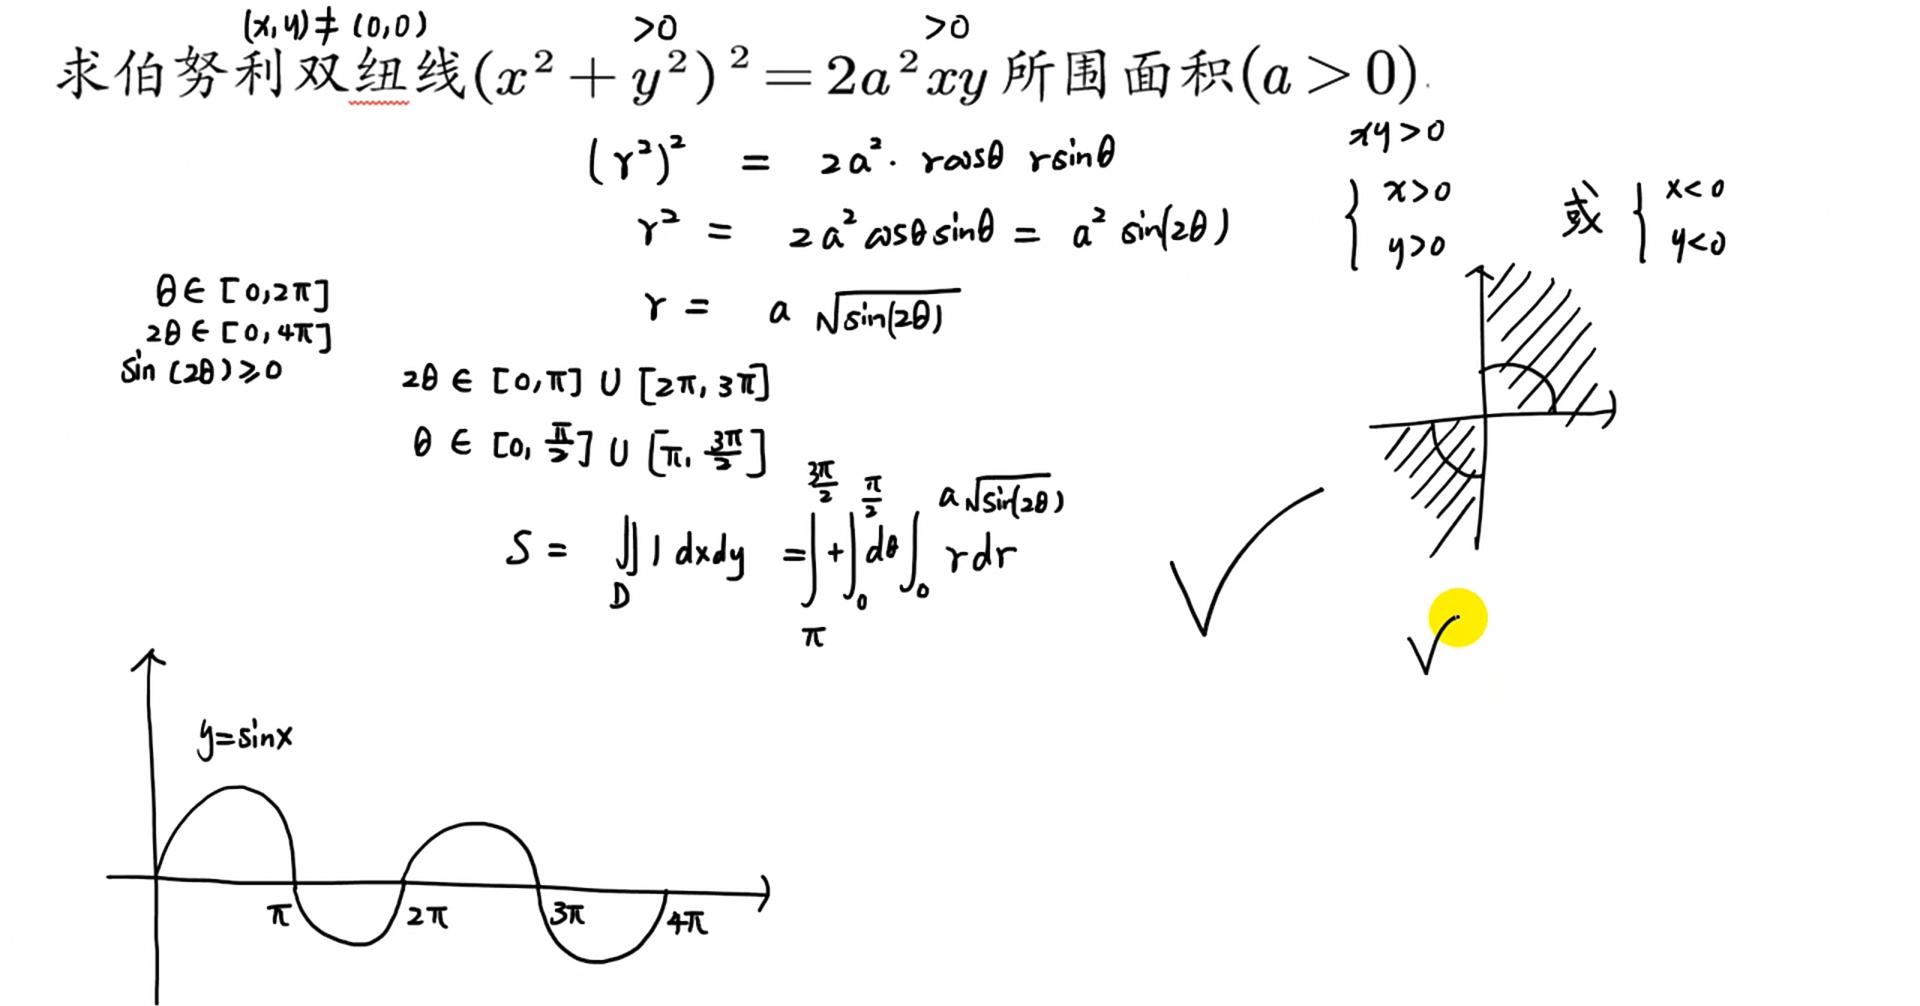 (x,y)≠(0,0) >0 >0
求伯努利双纽线(x²+y²)²=2a²xy所围面积(a>0).
(r²)² = 2a²·rcosθ rsinθ
r² = 2a²cosθsinθ = a² sin(2θ)
r = a√sin(2θ)
xy>0
{ x>0 y>0 或 { x<0 y<0
θ∈[0,2π]
2θ∈[0,4π]
sin(2θ)≥0
2θ∈[0,π]∪[2π,3π]
θ∈[0,π/2]∪[π,3π/2]
S = ∬_D 1dxdy = ∫_π^{3π/2}+∫_0^{π/2}dθ∫_0^{a√sin(2θ)} rdr
y=sinx
π 2π 3π 4π